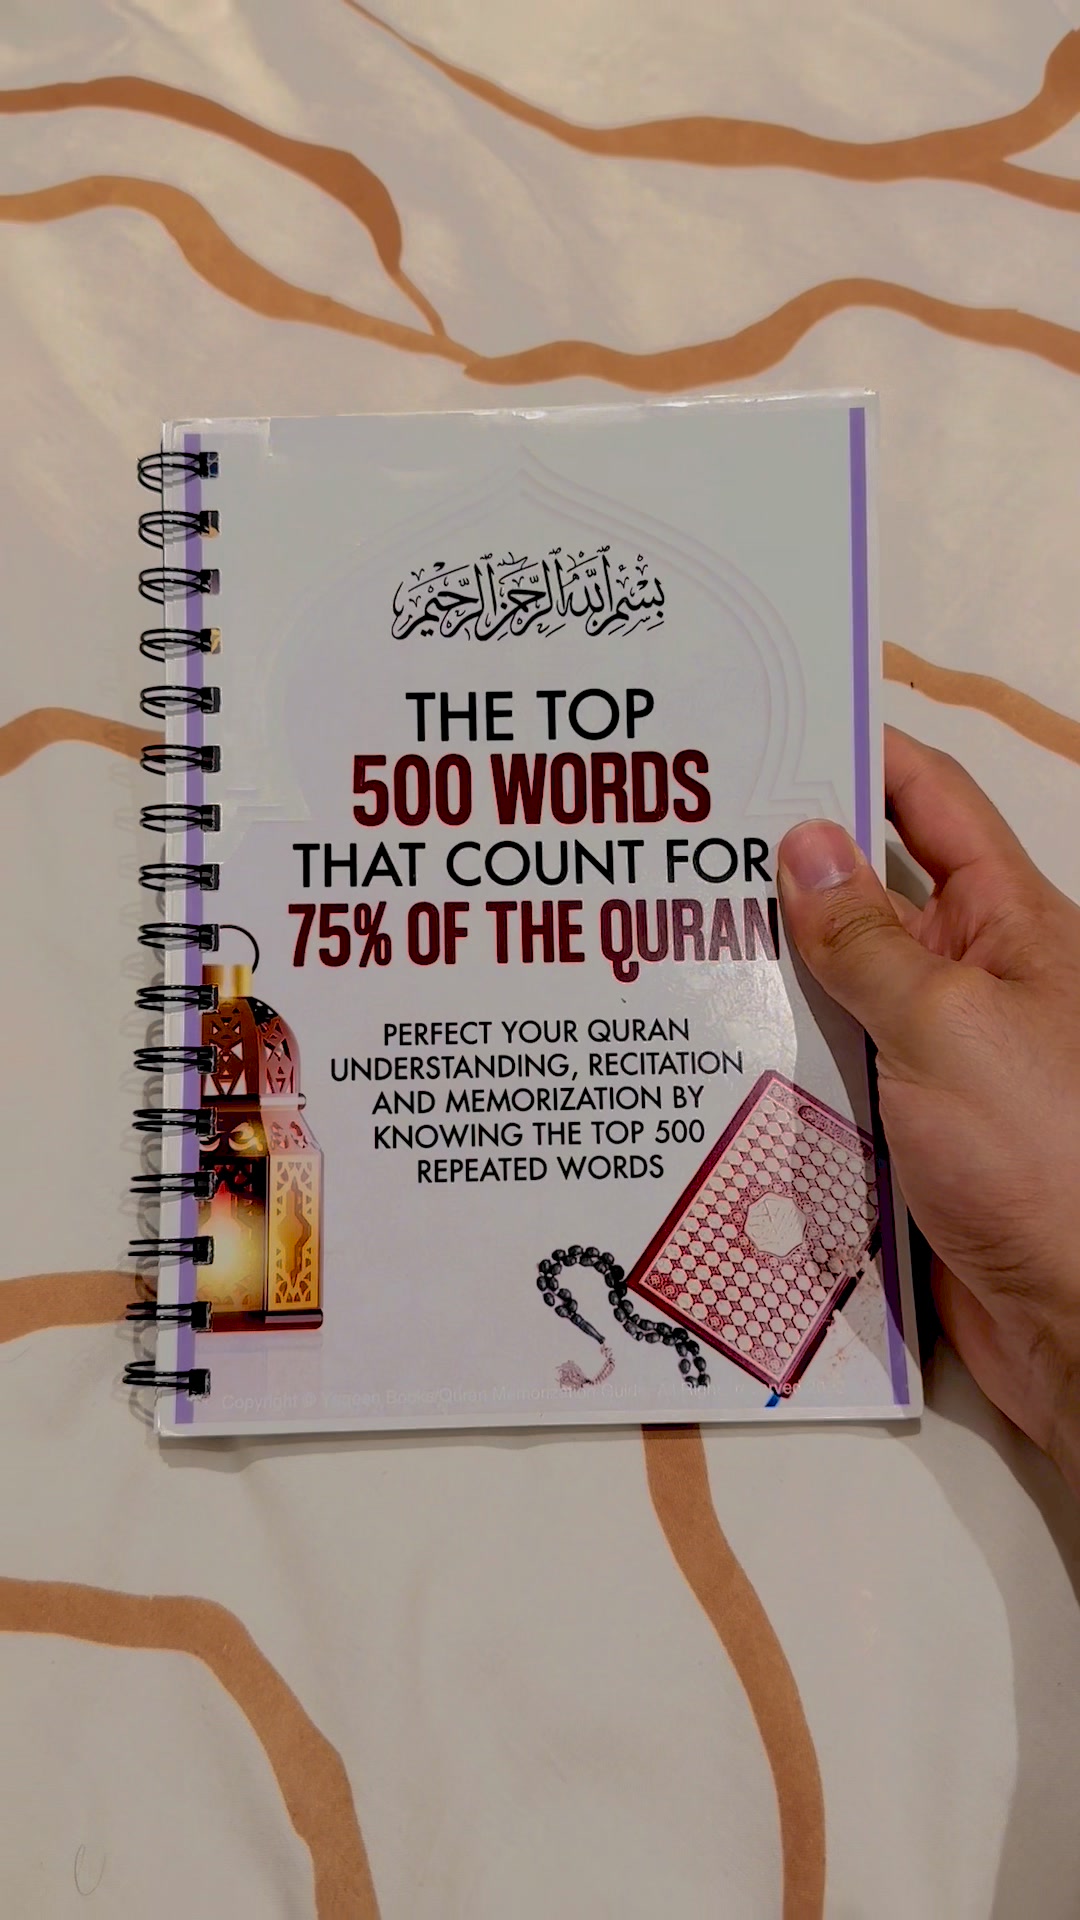 بسم الله الرحمن الرحيم
THE TOP
500 WORDS
THAT COUNT FOR
75% OF THE QURAN
PERFECT YOUR QURAN
UNDERSTANDING, RECITATION
AND MEMORIZATION BY
KNOWING THE TOP 500
REPEATED WORDS
Copyright © Books/Quran Memorization Guide. All